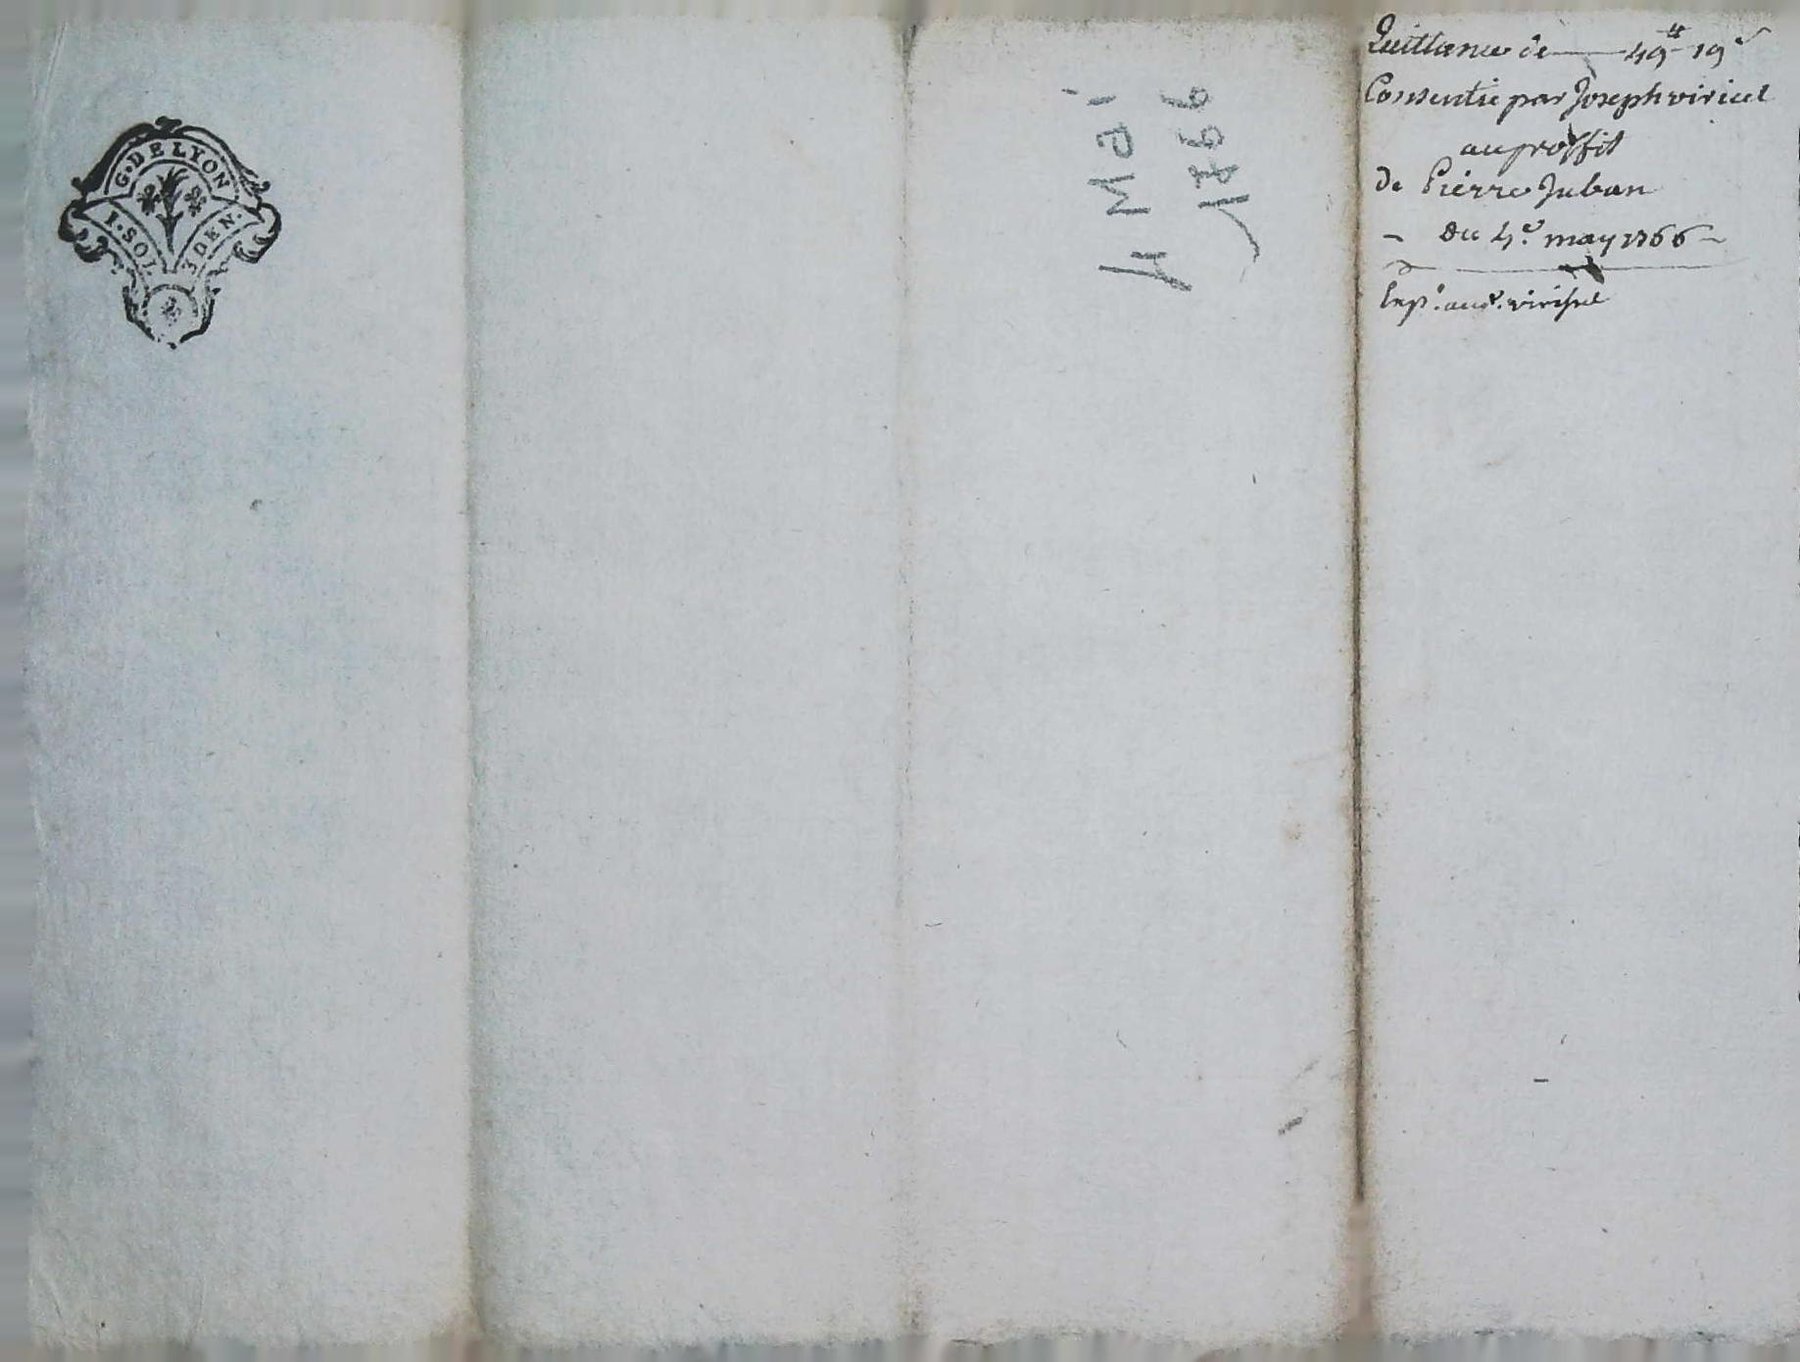 G. DE LYON
1. SOL 3 DEN.
4 Mai
1766
Quittance de 49᷵ 19ˢ
Consentie par Joseph viricel
au proffit
de Pierre Juban
- du 4.e may 1766 -